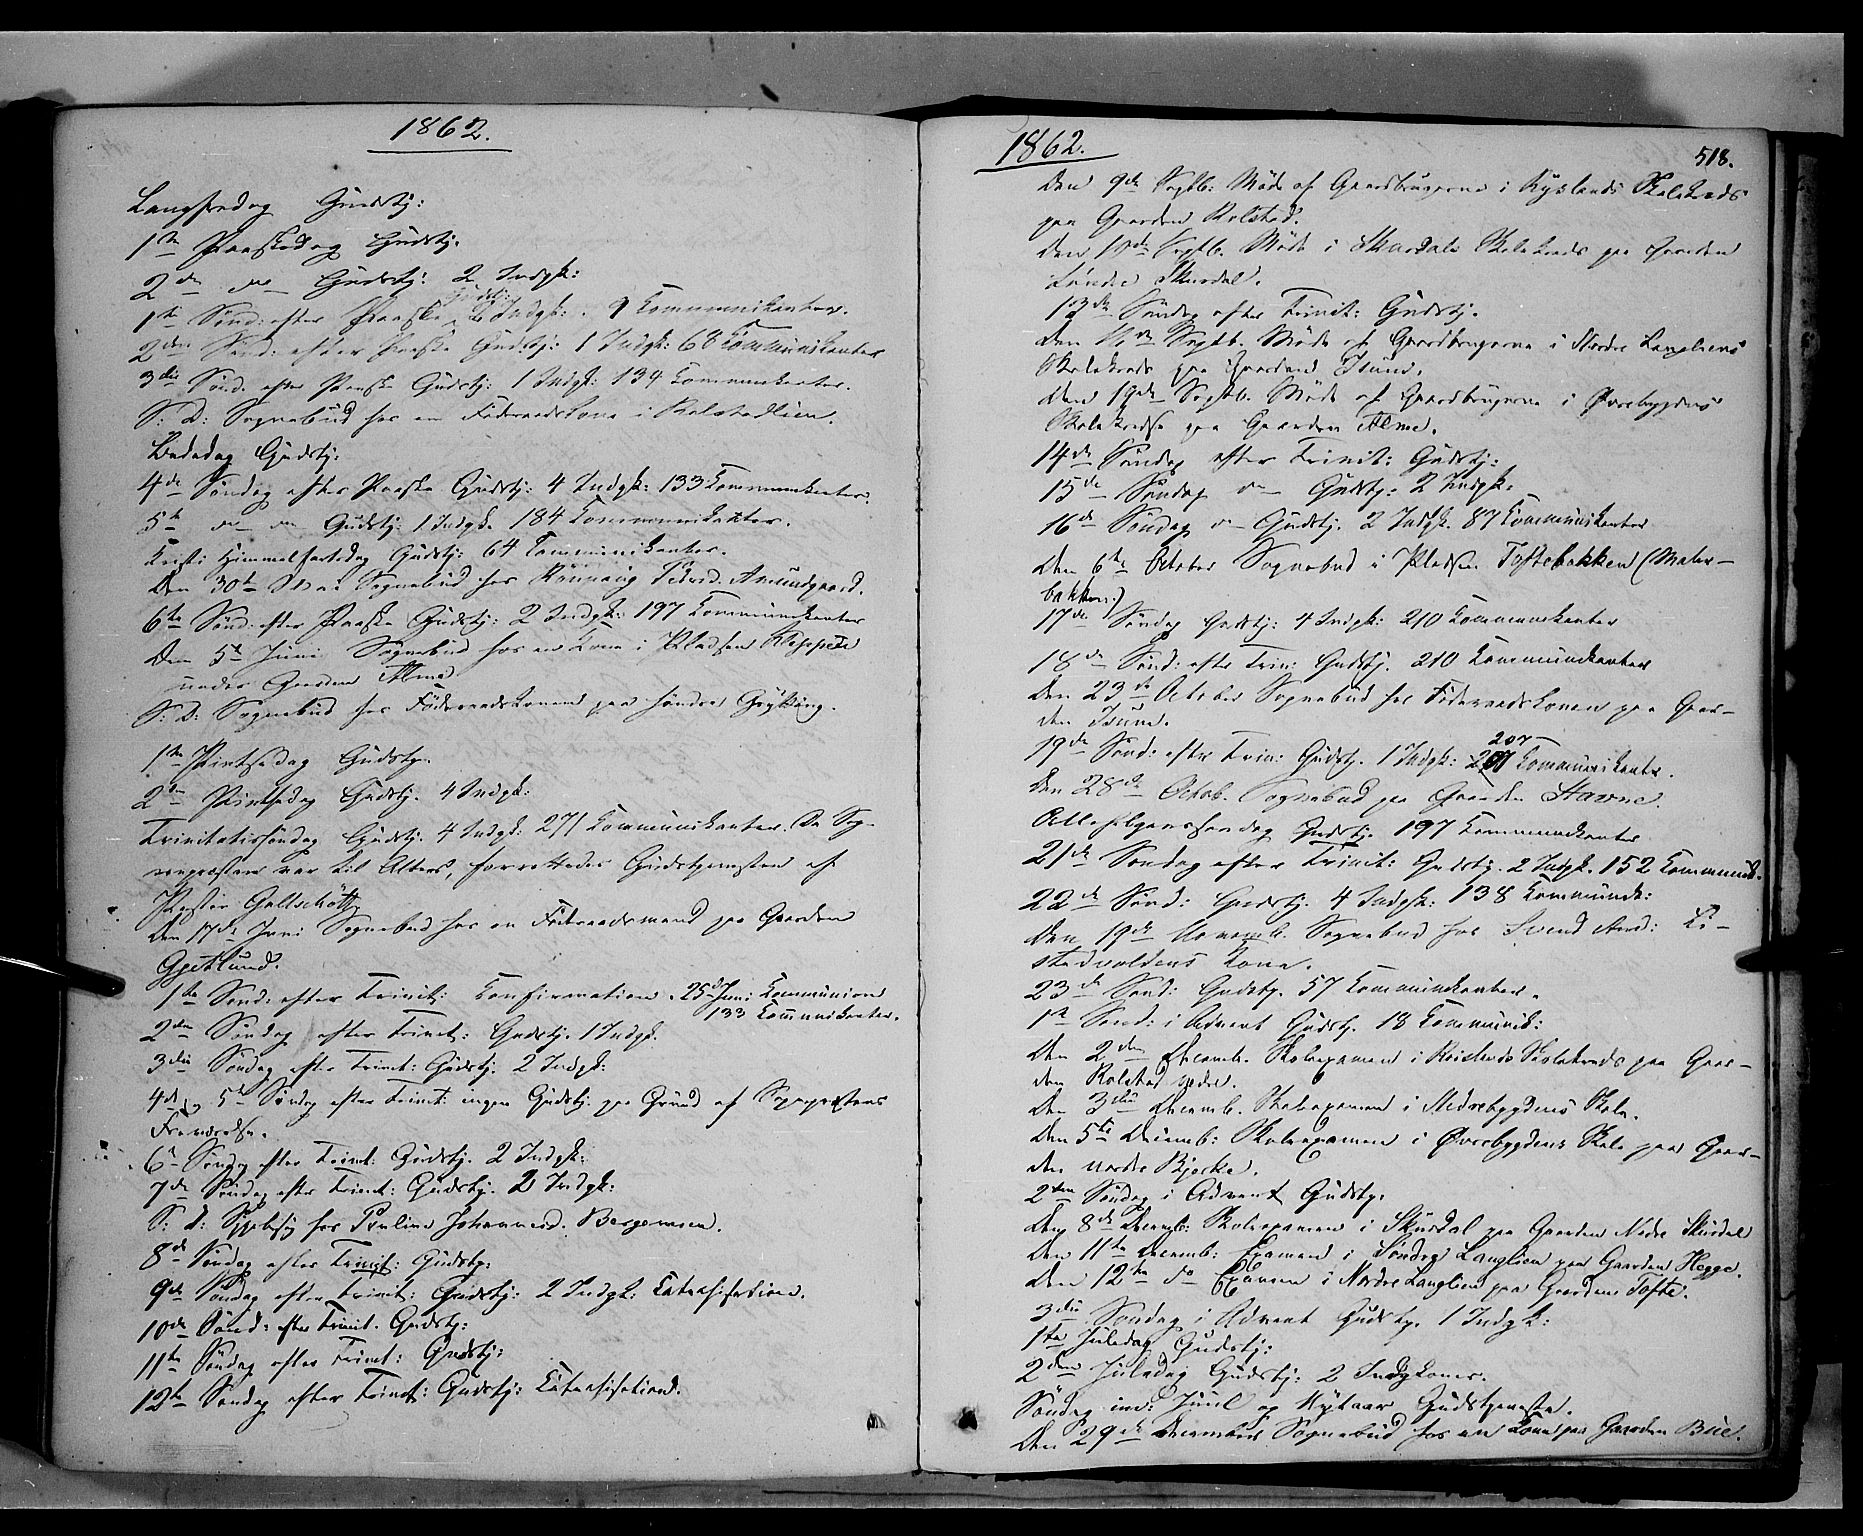 1862.
Langfredag Gudstj:
1ste Paaskedag Gudstj.
2den do Gudstj: 2 Indgk:
1ste Sønd: efter Paaske Gudstj: 2 Indgk: 9 Kommunikanter.
2den Sønd: efter Paaske Gudstj: 1 Indgk: 68 Kommunikanter
3die Sønd. efter Paaske Gudstj: 1 Indgk: 134 Kommunikanter.
S: D: Sognebud hos en Føderaadskone i Kolstadlien.
Bededag Gudstj:
4de Søndag efter Paaske Gudstj: 4 Indgk: 133 Kommunikanter.
5te do do Gudstj: 1 Indgk. 184 Kommunikanter.
Kristi Himmelfartsdag Gudstj: 64 Kommunikanter.
Den 30te Mai Sognebud hos Rønnaug Amundgaard.
6te Sønd: efter Paaske Gudstj: 2 Indgk: 197 Kommunikanter
Den 5te Juni Sognebud hos en Kone i Pladsen
under Gaarden Alme
S: D: Sognebud hos Føderaadskonen paa søndre Grytting.
1ste Pintsedag Gudstj.
2den Pintsedag Gudstj. 4 Indgk:
Trinitatissøndag Gudstj. 4 Indgk: 271 Kommunikanter. Da Sog-
nepræsten var til Alters, forrettedes Gudstjenesten af
Pastor Gottschalk
Den 17de Juni Sognebud hos en Føderaadsmand paa Gaarden
Gjetlund.
1ste Sønd: efter Trinit: Confirmation. 25de Juni Kommunion
133 Kommunikanter.
2den Søndag efter Trinit: Gudstj. 1 Indgk.
3die Søndag efter Trinit: Gudstj. 2 Indgk:
4de og 5te Søndag efter Trinit: ingen Gudstj: paa Grund af Sognepræstens
Fraværelse.
6te Søndag efter Trinit: Gudstj. 2 Indgk:
7de Søndag efter Trinit: Gudstj. 2 Indgk:
S: d: Sygebesøg hos Pauline Johannesd. Bergemoen.
8de Søndag efter Trinit: Gudstj:
9de Søndag efter Trinit: Gudstj: 2 Indgk: Katechisation.
10de Sønd: efter Trinit. Gudstj:
11te Søndag efter Trinit: Gudstj:
12te Søndag efter Trinit: Gudstj: Katechisation.
1862.
518.
Den 9de Septb: Møde af Gaardbrugerne i Ryslands Skolekreds
paa Gaarden Kolstad.
Den 10de Septb. Møde i Skurdals Skolekreds paa Gaarden
Søndre Skurdal.
13de Søndag efter Trinit: Gudstj.
Den Septb. Møde af Gaardbrugerne i Nordre Langliens
Skolekreds paa Gaarden Isum.
Den 19de Septb. Møde af Gaardbrugerne i Øvrebygdens
Skolekreds paa Gaarden Alme.
14de Søndag efter Trinit: Gudstj:
15de Søndag do Gudstj: 2 Indgk:
16de Søndag do Gudstj. 2 Indgk. 87 Kommunikanter
Den 6te October Sognebud i Pladsen Toftebakken (Maler-
bakken.)
17de Søndag Gudstj: 4 Indgk: 210 Kommunikanter
18de Sønd: efter Trin: Gudstj. 210 Kommunikanter
Den 23de October Sognebud hos Føderaadskonen paa Gaar-
den Isum.
19de Sønd: efter Trin: Gudstj. 1 Indgk: 207 Kommunikanter.
Den 28de Octob. Sognebud paa Gaarden Stavne.
Allehelgenssøndag Gudstj. 197 Kommunikanter
21de Søndag efter Trinit: Gudstj. 2 Indgk. 152 Kommunik.
22de Sønd: Gudstj. 4 Indgk: 138 Kommunik:
Den 19de Novemb. Sognebud hos Svend And:
Kone.
23de Sønd: Gudstj. 57 Kommunikanter.
1ste Sønd: i Advent Gudstj. 18 Kommunik:
Den 2den Decemb. Skoleexamen i Skolekreds paa Gaar-
den Kolstad nedre.
Den 3die Decemb. Skoleexamen i Nedrebygdens Skole.
Den 5te Decemb: Skoleexamen i Øvrebygdens Skole paa Gaar-
den nordre Bjerke.
2den Søndag i Advent Gudstj.
Den 8de Decemb: Skoleexamen i Skurdal paa Gaarden Nedre Skurdal
Den 11te Decemb: Examen i Søndre Langlien paa Gaarden Hegge.
Den 12te do Examen i Nordre Langlien paa Gaarden Tofte.
3die Søndag i Advent Gudstj. 1 Indgk:
1ste Juledag Gudstj:
2den Juledag Gudstj: 2 Indgkoner.
Søndag im: Juul og Nytaar Gudstjeneste.
Den 29de December Sognebud hos en Kone paa Gaarden Bue.